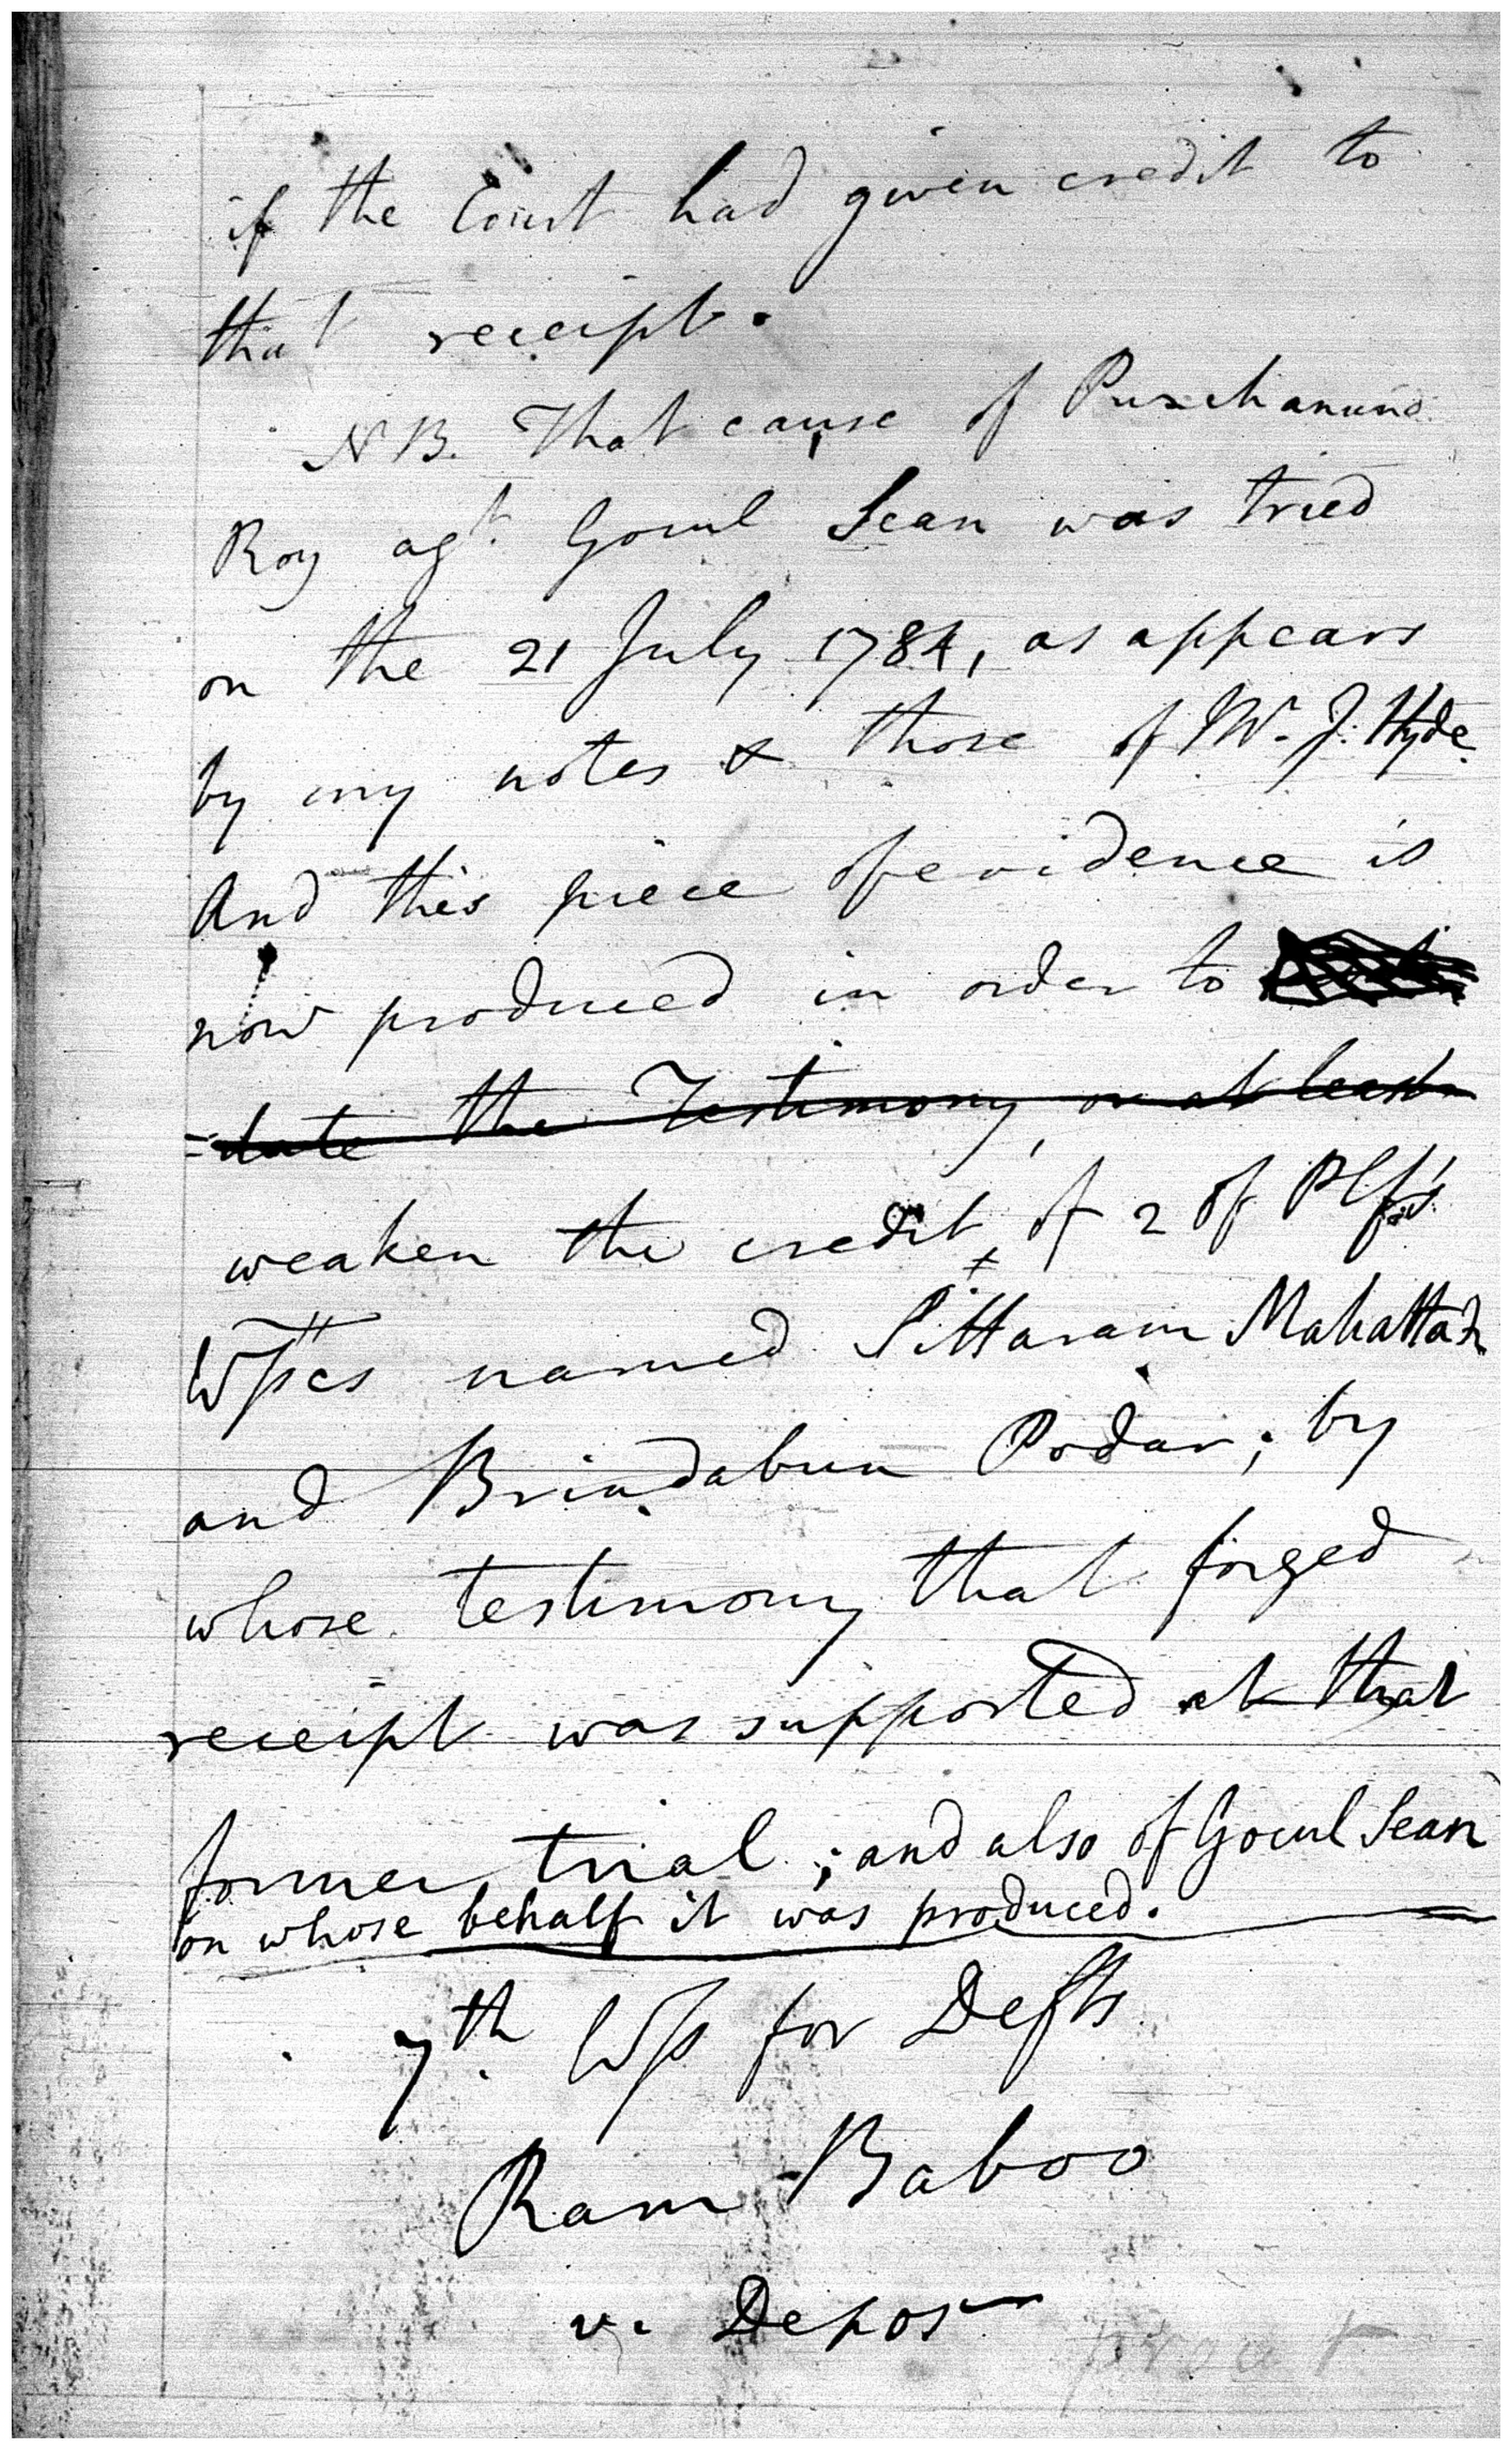 if the Court had given credit to
that receipt.
N B. That cause of Punchanund
Roy agt. Gocul Sean was tried
on the 21 July 1784, as appears
by my notes & those of Mr. J. Hyde.
And this piece of evidence is
now produced in order to
=date the Testimony, or at least
weaken the credit of 2 of Plfs
Wsses named Sittaram Mahattah
and Brindabun Podar; by
whose testimony that forged
receipt was supported at that
former trial; and also of Gocul Sean
on whose behalf it was produced.
7th Wss for Defts
Ram Baboo
v. Depos